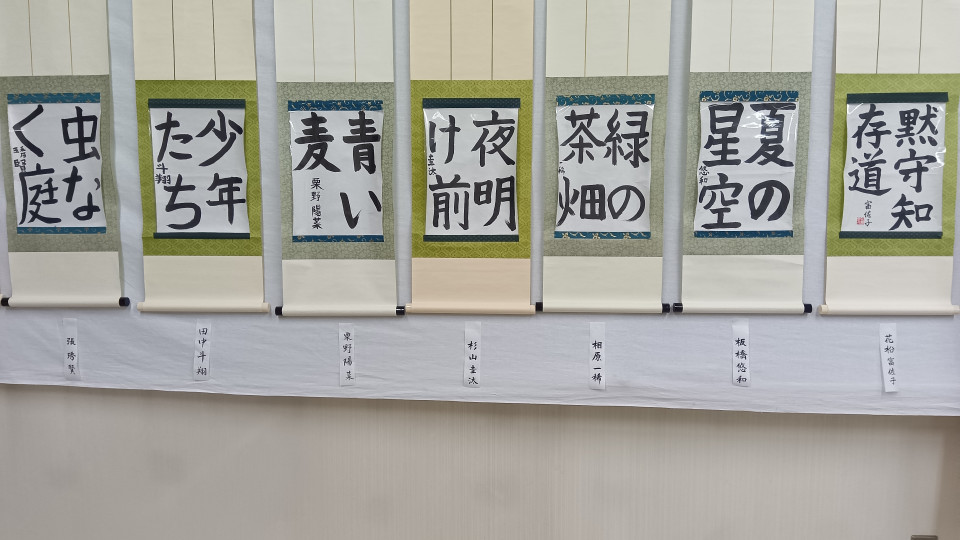 黙守知
存道
富佐子
夏の
星空
悠和
緑の
茶畑
夜明
け前
圭汰
青い
麦
栗野陽菜
少年
たち
斗翔
虫な
く庭
花粉富佐子
板橋悠和
相原一稀
杉山圭汰
栗野陽菜
田中斗翔
張琇賢